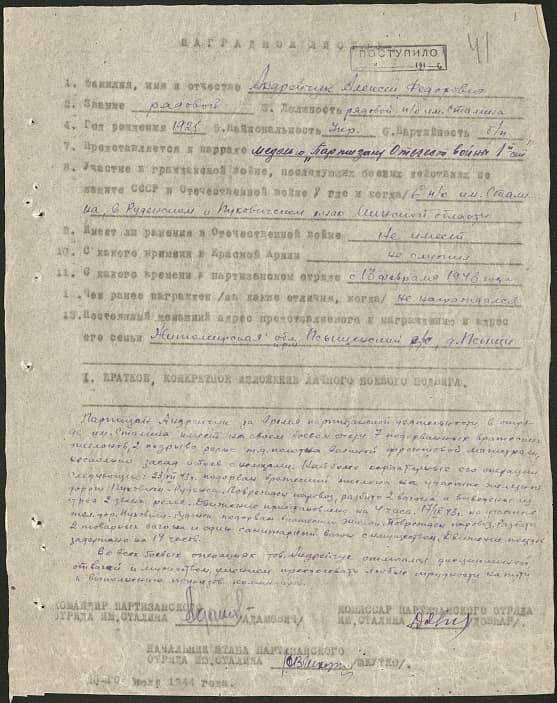 НАГРАДНОЙ ЛИСТ
ПОСТУПИЛО
41
1. Фамилия, имя и отчество Андрейчик Алексей Федорович
2. Звание рядовой 3. Должность рядовой п/о им. Сталина
4. Год рождения 5. Национальность Укр. 6. Партийность б/п
7. Представляется к награде медалью "Партизану Отечест войны 1ой ст"
8. Участие в гражданской войне, последующих боевых действиях по
защите СССР и Отечественной войне /где и когда/ в п/о им. Стали
на, в Руденском и Пуховичском р-нах Минской области
9. Имеет ли ранения в Отечественной войне Не имеет
10. С какого времени в Красной Армии не служил
11. С какого времени в партизанском отряде с 13 февраля 1943 года
Чем ранее награжден /за какие отличия, когда/ не награждался
13. Постоянный домашний адрес представляемого к награждению и адрес
его семьи Житомирская обл. с/с, д.
I. КРАТКОЕ, КОНКРЕТНОЕ ИЗЛОЖЕНИЕ ЛИЧНОГО БОЕВОГО ПОДВИГА.
Партизан Андрейчик за время партизанской деятельности в отря-
де им. Сталина имеет на своем боевом счету 7 подорванных вражеских
эшелонов, 2 подрыва рельс
несколько засад и боев с немцами. Наиболее его операции
следующие: подорван вражеский эшелон на участке железной
дороги Пуховичи-Руденск. Поврежден паровоз, разбито 2 вагона и выведено из
строя 2 звена рельс. Движение приостановлено на 4 часа. на участке
жел. дор. Пуховичи-Руденск подорван вражеский эшелон. Поврежден паровоз, разбито
2 товарных вагона и один санитарный вагон с имуществом, движение поездов
задержано на 14 часов.
Во всех боевых операциях тов. Андрейчик отличался дисциплиной,
отвагой и мужеством, умением преодолевать любые трудности на пути
к выполнению приказов командира.
КОМАНДИР ПАРТИЗАНСКОГО
ОТРЯДА ИМ. СТАЛИНА /АДАМОВИЧ/
КОМИССАР ПАРТИЗАНСКОГО ОТРЯДА
ИМ. СТАЛИНА
НАЧАЛЬНИК ШТАБА ПАРТИЗАНСКОГО
ОТРЯДА ИМ. СТАЛИНА /ШКУТКО/.
1944 года.